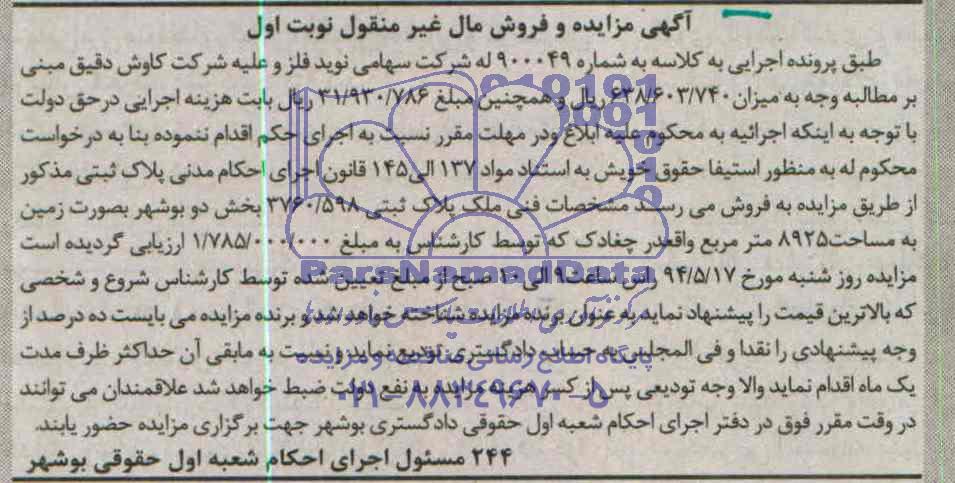 آگهی مزایده و فروش مال غیر منقول نوبت اول
طبق پرونده اجرایی به کلاسه به شماره ۹۰۰۰۴۹ له شرکت سهامی نوید فلز و علیه شرکت کاوش دقیق مبنی
بر مطالبه وجه به میزان ۶۳۸/۶۰۳/۷۴۰ ریال و همچنین مبلغ ۳۱/۹۳۰/۷۸۶ ریال بابت هزینه اجرایی درحق دولت
با توجه به اینکه اجرائیه به محکوم علیه ابلاغ ودر مهلت مقرر نسبت به اجرای حکم اقدام ننموده بنا به درخواست
محکوم له به منظور استیفا حقوق خویش به استناد مواد ۱۳۷ الی۱۴۵ قانون اجرای احکام مدنی پلاک ثبتی مذکور
از طریق مزایده به فروش می رسد مشخصات فنی ملک پلاک ثبتی ۳۷۶۰/۵۹۸ بخش دو بوشهر بصورت زمین
به مساحت۸۹۲۵ متر مربع واقعدر چغادک که توسط کارشناس به مبلغ ۱/۷۸۵/۰۰۰/۰۰۰ ارزیابی گردیده است
مزایده روز شنبه مورخ ۹۴/۵/۱۷ راس ساعت۹ الی ۱۰ صبح از مبلغ تعیین شده توسط کارشناس شروع و شخصی
که بالاترین قیمت را پیشنهاد نماید به عنوان برنده مزایده شناخته خواهد شد و برنده مزایده می بایست ده درصد از
وجه پیشنهادی را نقدا و فی المجلس به حساب دادگستری تودیع نماید و نسبت به مابقی آن حداکثر ظرف مدت
یک ماه اقدام نماید والا وجه تودیعی پس از کسر هزینه مزایده به نفع دولت ضبط خواهد شد علاقمندان می توانند
در وقت مقرر فوق در دفتر اجرای احکام شعبه اول حقوقی دادگستری بوشهر جهت برگزاری مزایده حضور یابند.
۲۴۴ مسئول اجرای احکام شعبه اول حقوقی بوشهر
ParsNamadData
پایگاه اطلاع رسانی مناقصه و مزایده
۰۲۱-۸۸۳۴۹۶۷۰-۵